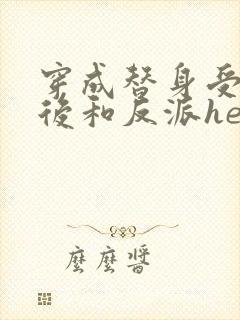 穿成替身受
後和反派he
麼麼醬